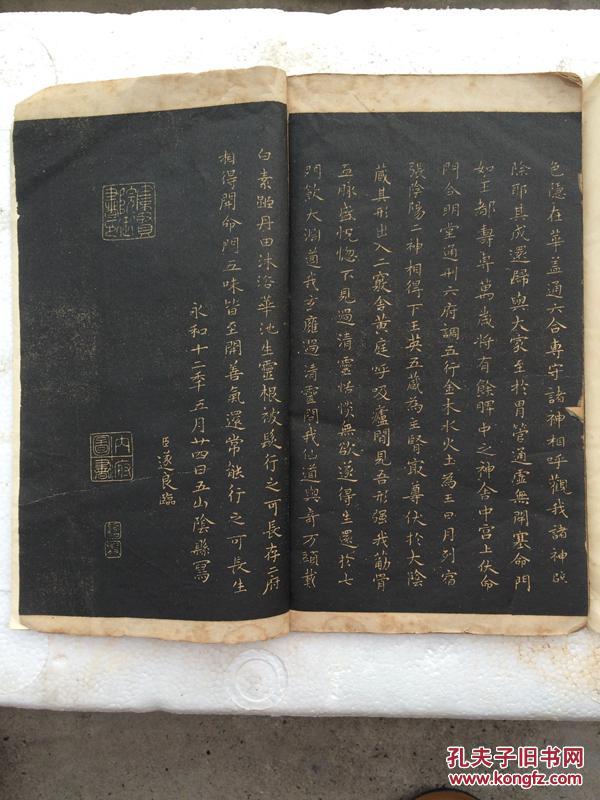 色隱在華蓋通六合專守諸神相呼觀我諸神辟
除耶其成還歸與大家至於胃管通虛無閉塞命門
如玉都壽專萬歲將有餘脾中之神舍中宮上伏命
門合明堂通利六府調五行金木水火土為王日月列宿
張陰陽二神相得下玉英五藏為主腎最尊伏於大陰
藏其形出入二竅舍黃庭呼吸廬間見吾形强我筋骨
五脉盛怳惚不見過清靈恬惔無欲遂得生還於七
門飲大淵道我玄雍過清靈問我仙道與奇方頭載
白素距丹田沐浴華池生靈根被髮行之可長存二府
相得開命門五味皆至開善氣還常能行之可長生
永和十二年五月廿四日五山陰縣寫
臣遂良臨
內府
圖書
孔夫子旧书网
www.kongfz.com